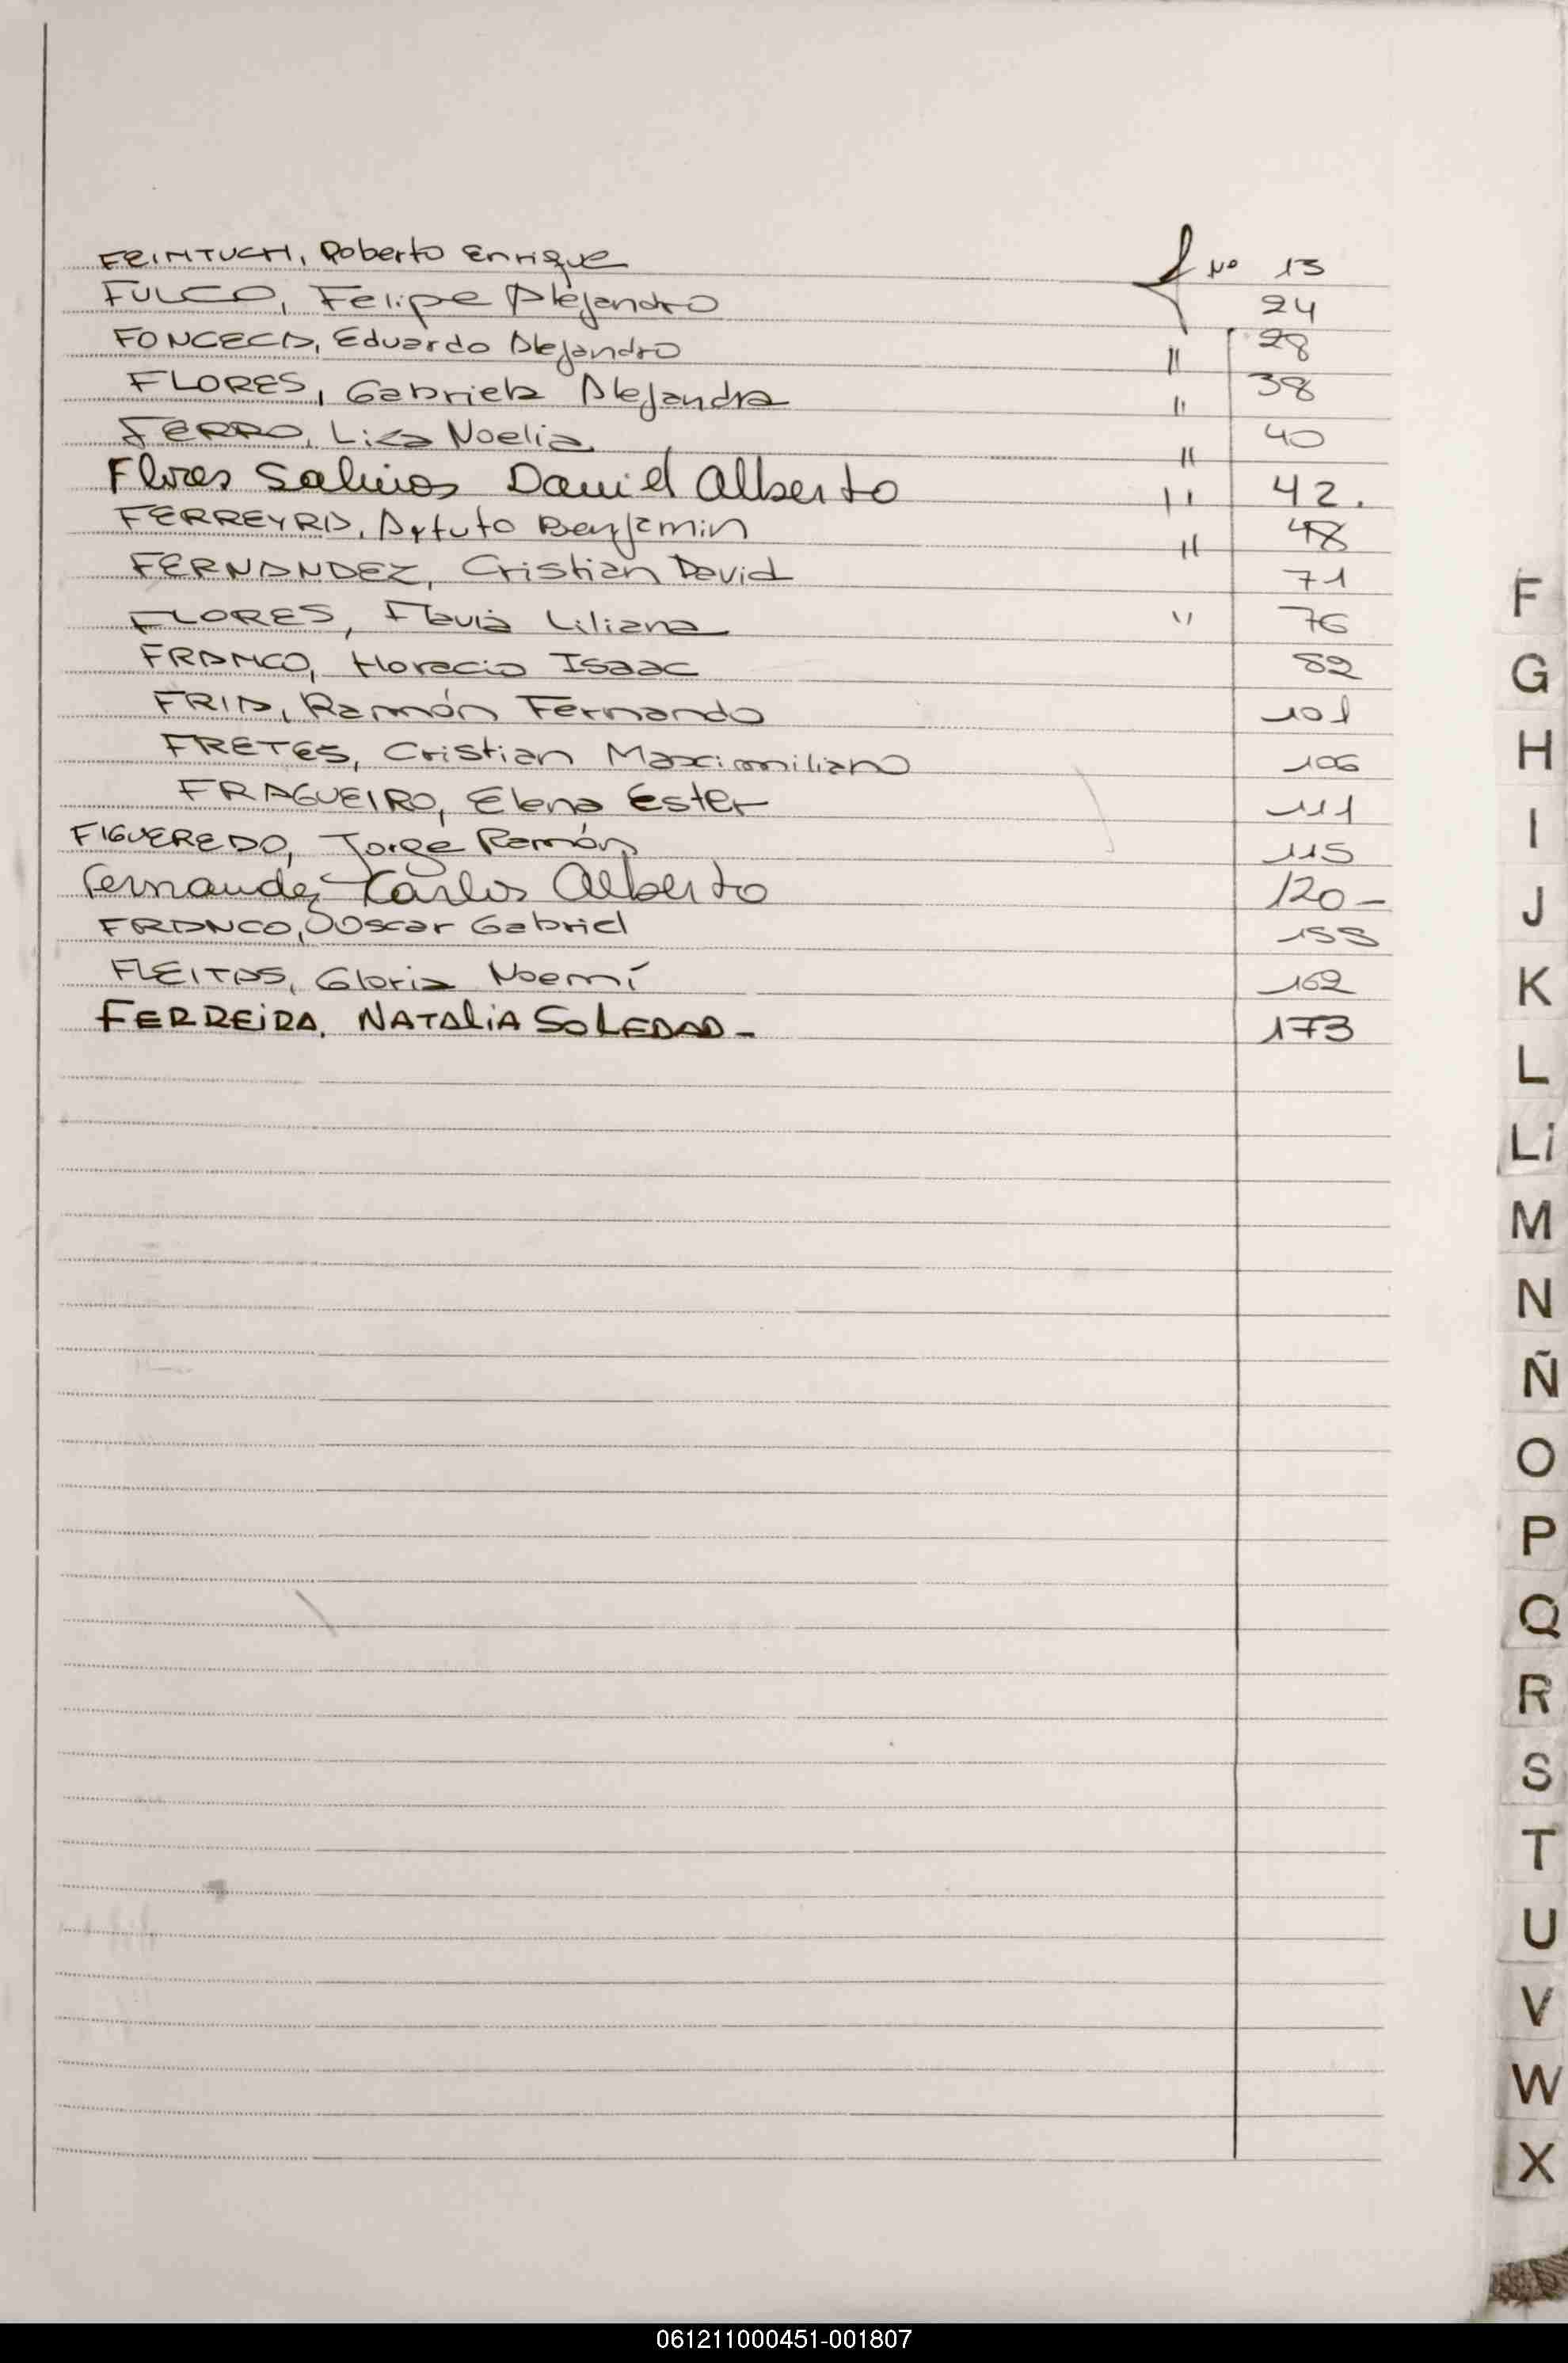 FEINTUCH, Roberto Enrique Nº 13
FULCO, Felipe Alejandro 24
FONCECA, Eduardo Alejandro " 28
FLORES, Gabriela Alejandra " 38
FERRO, Liza Noelia " 40
Flores Salinos Daniel Alberto " 42.
FERREYRA, Arturo Benjamin " 48
FERNANDEZ, Cristian David 71
FLORES, Flavia Liliana " 76
FRANCO, Horacio Isaac 82
FRIA, Ramón Fernando 101
FRETES, Cristian Maximiliano 106
FRAGUEIRO, Elena Ester 111
FIGUEREDO, Jorge Ramón 115
Fernandez Carlos Alberto 120-
FRANCO, Oscar Gabriel 155
FLEITAS, Gloria Noemí 162
FERREIRA, NATALIA SOLEDAD- 173
F
G
H
I
J
K
L
Ll
M
N
Ñ
O
P
Q
R
S
T
U
V
W
X
061211000451-001807